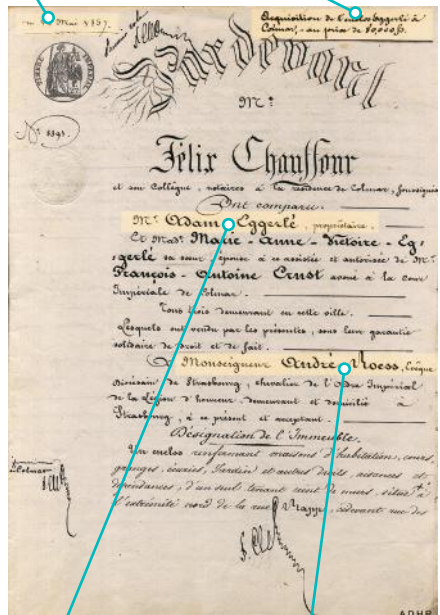 Mai 1857.
Acquisition de l'enclos Eggerlé à
Colmar, au prix de 80,000 f.
Pardevant
Mᵉ
N° 1391.
Félix Chauffour
et son Collègue, notaires à la résidence de Colmar, soussignés
Ont comparu.
Mʳ Adam Eggerlé, propriétaire.
Et Made Marie-Anne-Victoire-Eg-
gerlé sa sœur épouse à ce assistée et autorisée de Mʳ
François-Antoine Ernst avoué à la cour
Impériale de Colmar.
Tous trois demeurant en cette ville.
Lesquels ont vendu par les présentes, sous leur garantie
solidaire de droit et de fait.
à Monseigneur André Roess, Evêque
Diocésain de Strasbourg, chevalier de l'Ordre Impérial
de la Légion d'honneur, demeurant et domicilié à
Strasbourg, à ce présent et acceptant.
Désignation de l'Immeuble.
Un enclos renfermant maisons d'habitation, cours,
granges, écuries, Jardin et autres droits, aisances et
dépendances, d'un seul tenant ceint de murs, situés à
l'extrémité nord de la rue Rapp, cidevant rue des
à Colmar
ADHR